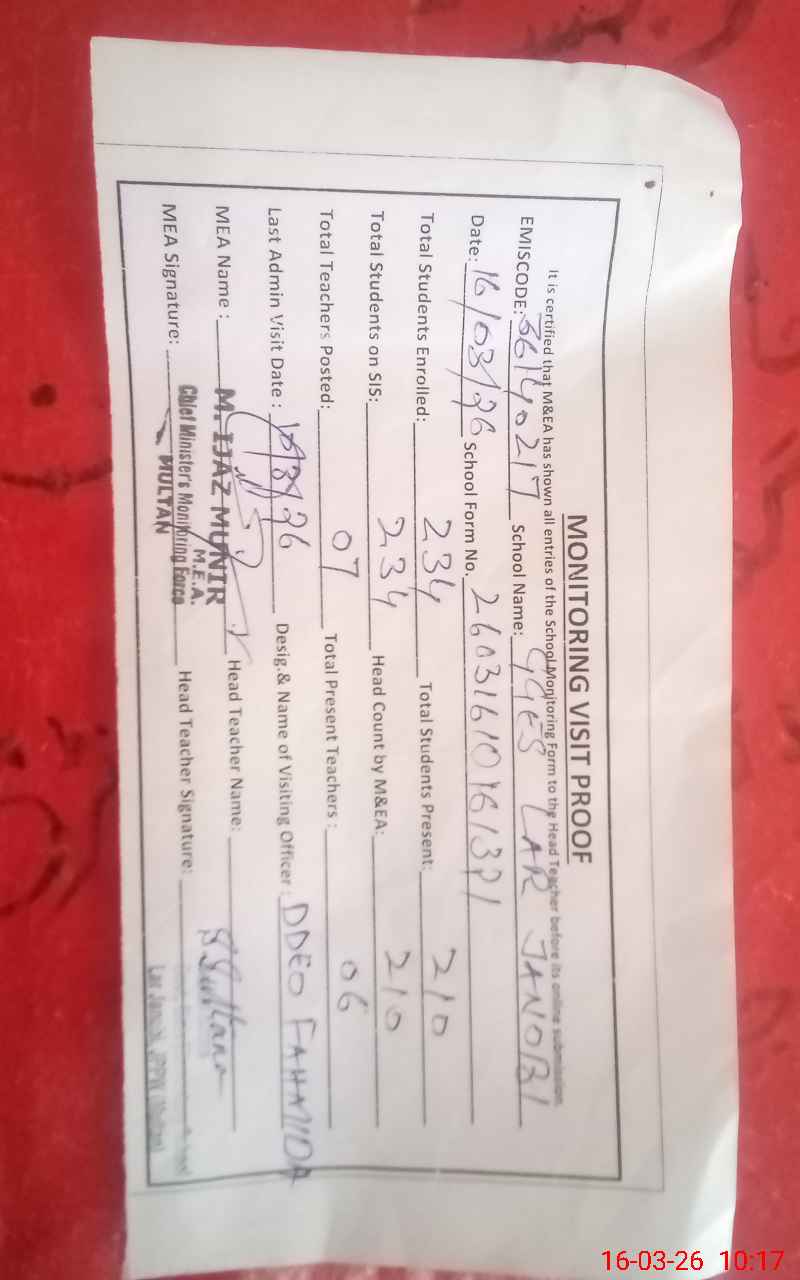 MONITORING VISIT PROOF
It is certified that M&EA has shown all entries of the School Monitoring Form to the Head Teacher before its online submission.
EMISCODE: 36140217 School Name: GGES LAR JANOBI
Date: 16/03/26 School Form No. 26031610161391
Total Students Enrolled: 234 Total Students Present: 210
Total Students on SIS: 234 Head Count by M&EA: 210
Total Teachers Posted: 07 Total Present Teachers : 06
Last Admin Visit Date : Desig.& Name of Visiting Officer : DDEO FAHMIDA
MEA Name : M. IJAZ MUNIR Head Teacher Name: S Sultana
M.E.A.
MEA Signature: Chief Minister's Monitoring Force Head Teacher Signature:
MULTAN
16-03-26 10:17